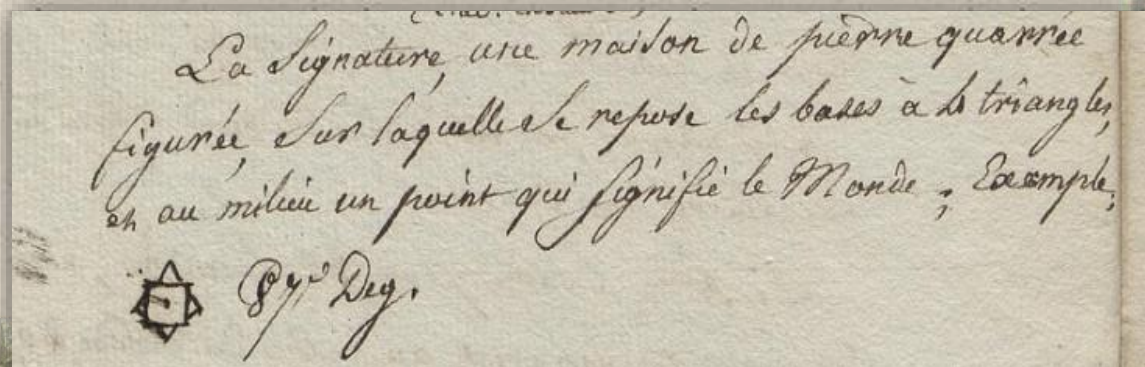 La Signature, une maison de pierre quarrée
figurée, Sur laquelle Se repose les bases à 4 triangles,
et au milieu un point qui signifie le Monde, Exemple,
87e Deg.